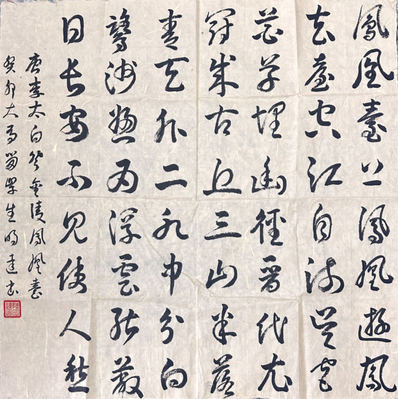 鳳凰臺上鳳凰遊鳳
去臺空江自流吳宮
花草埋幽徑晉代衣
冠成古丘三山半落
青天外二水中分白
鷺洲總為浮雲能蔽
日長安不見使人愁
唐李太白登金陵鳳凰臺
癸卯大學生明達書